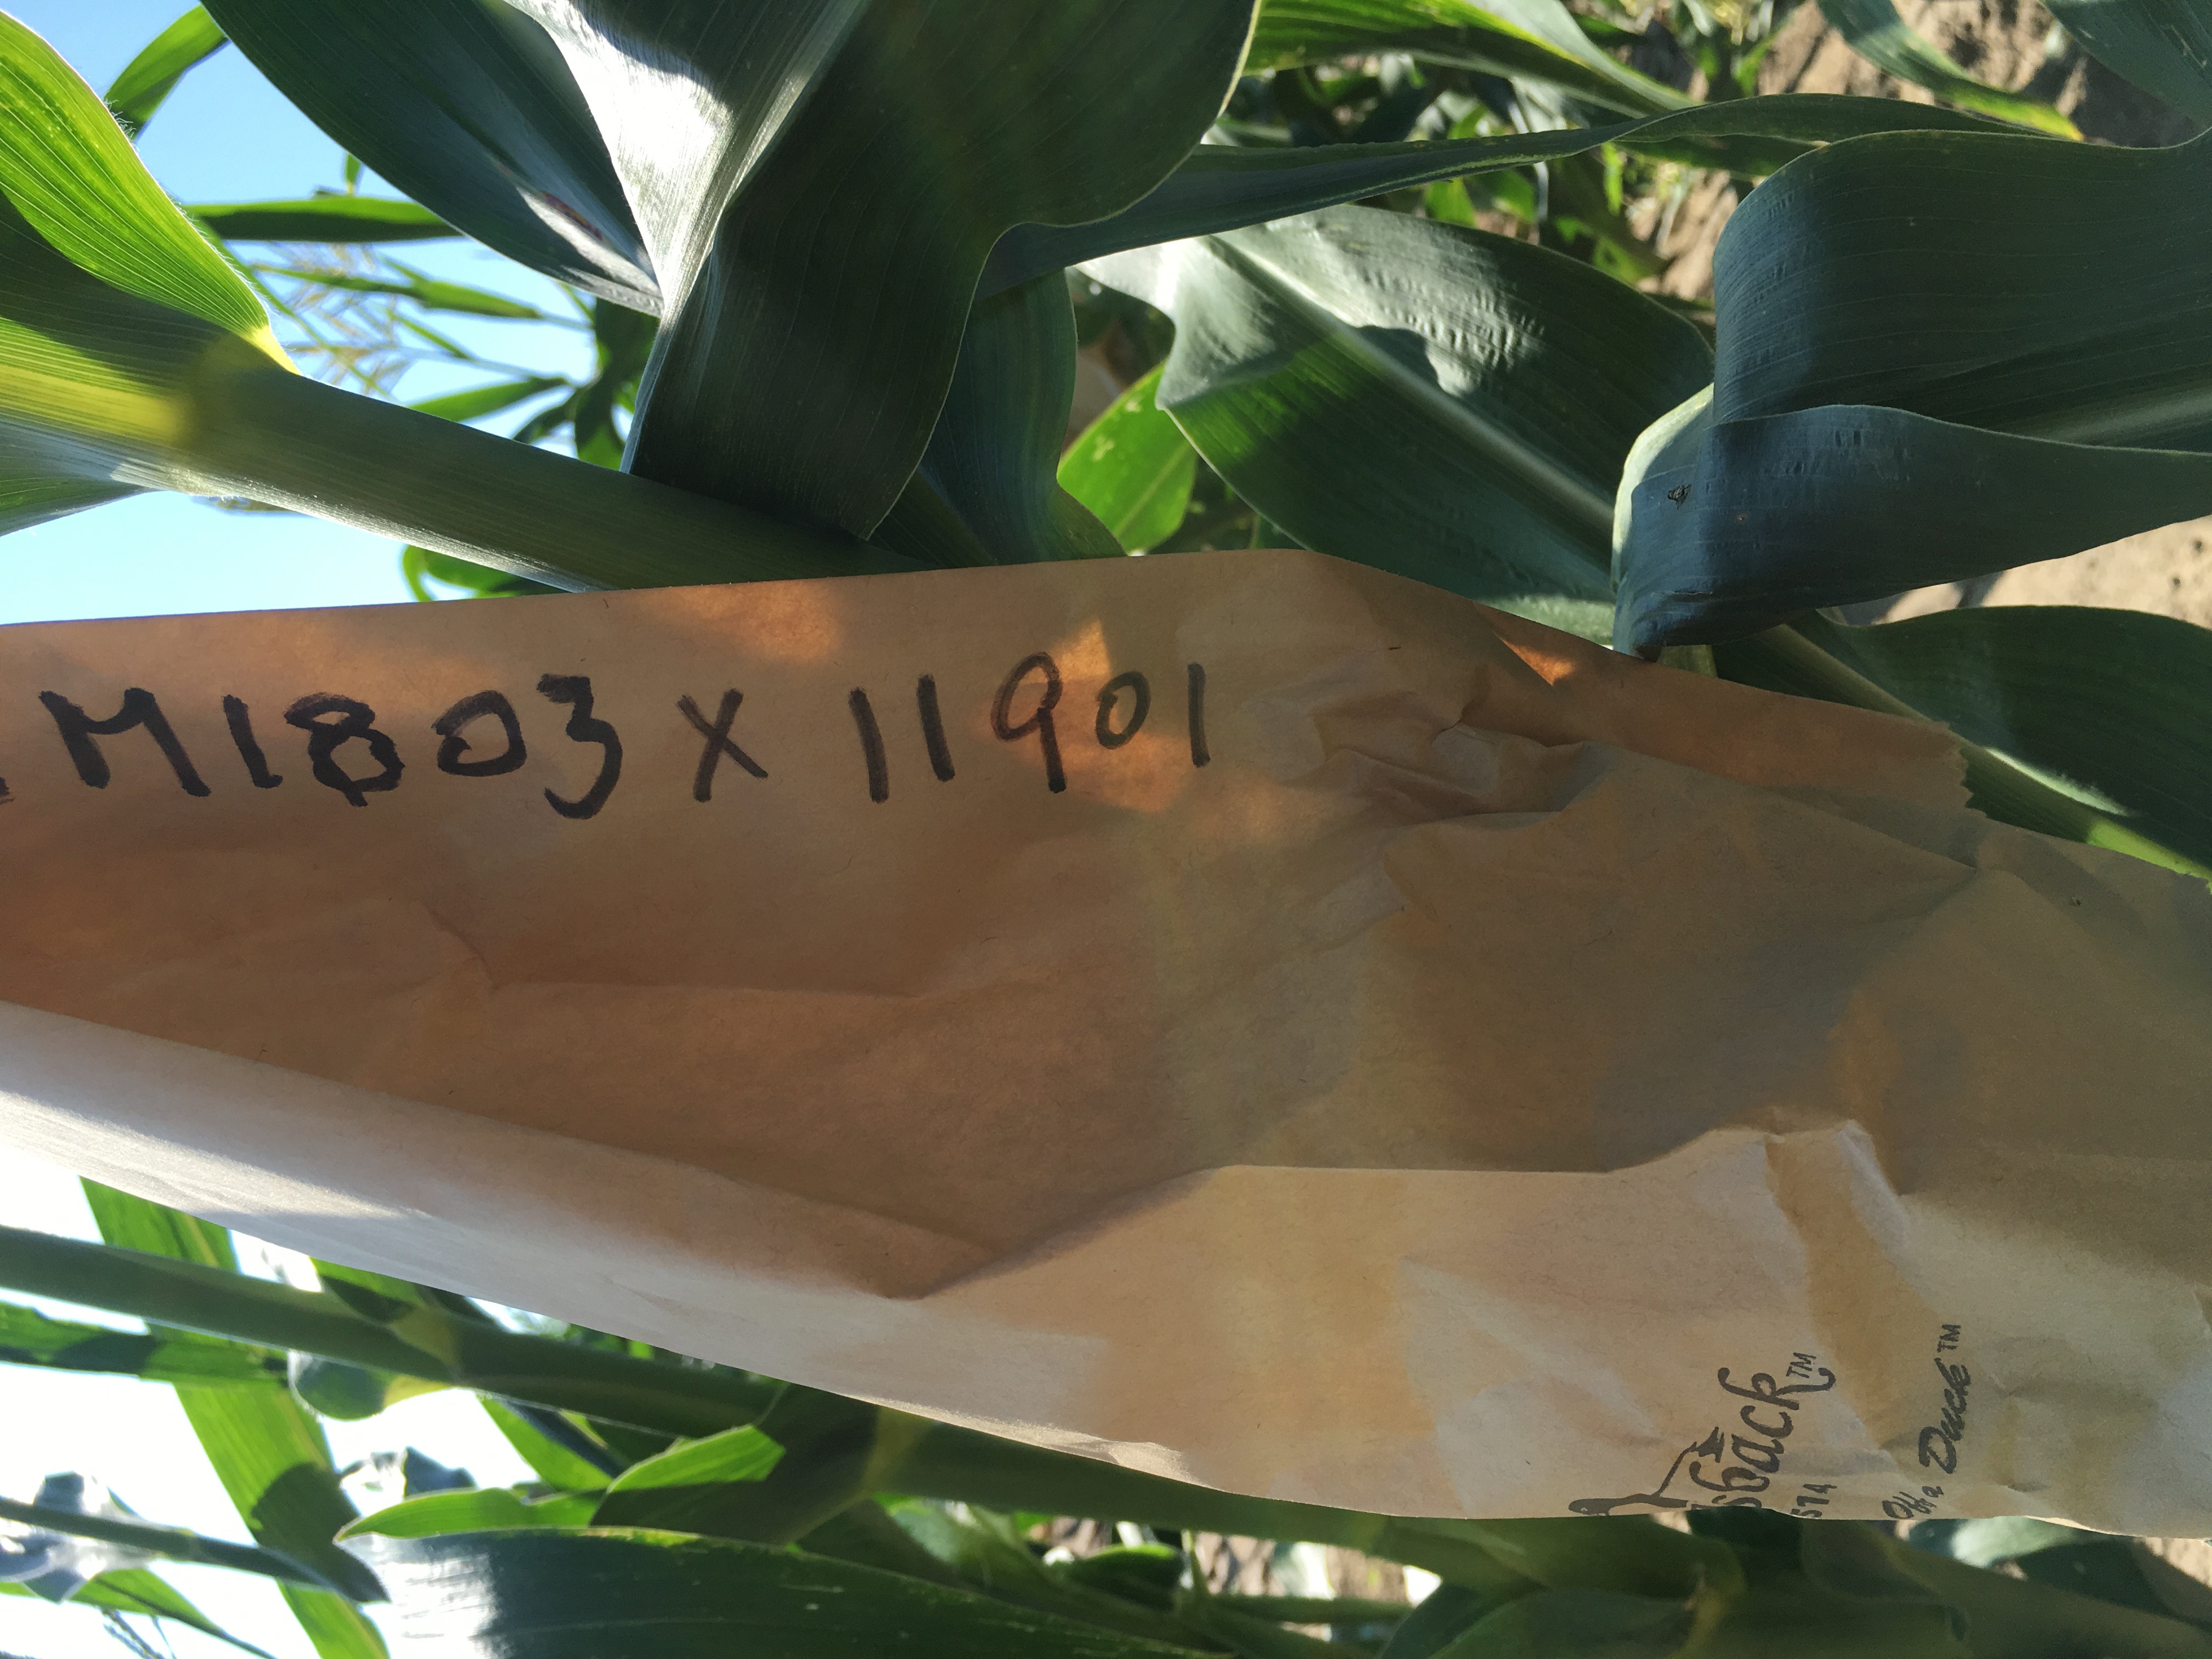 M1803 X 11901
sback™
514
Duck™